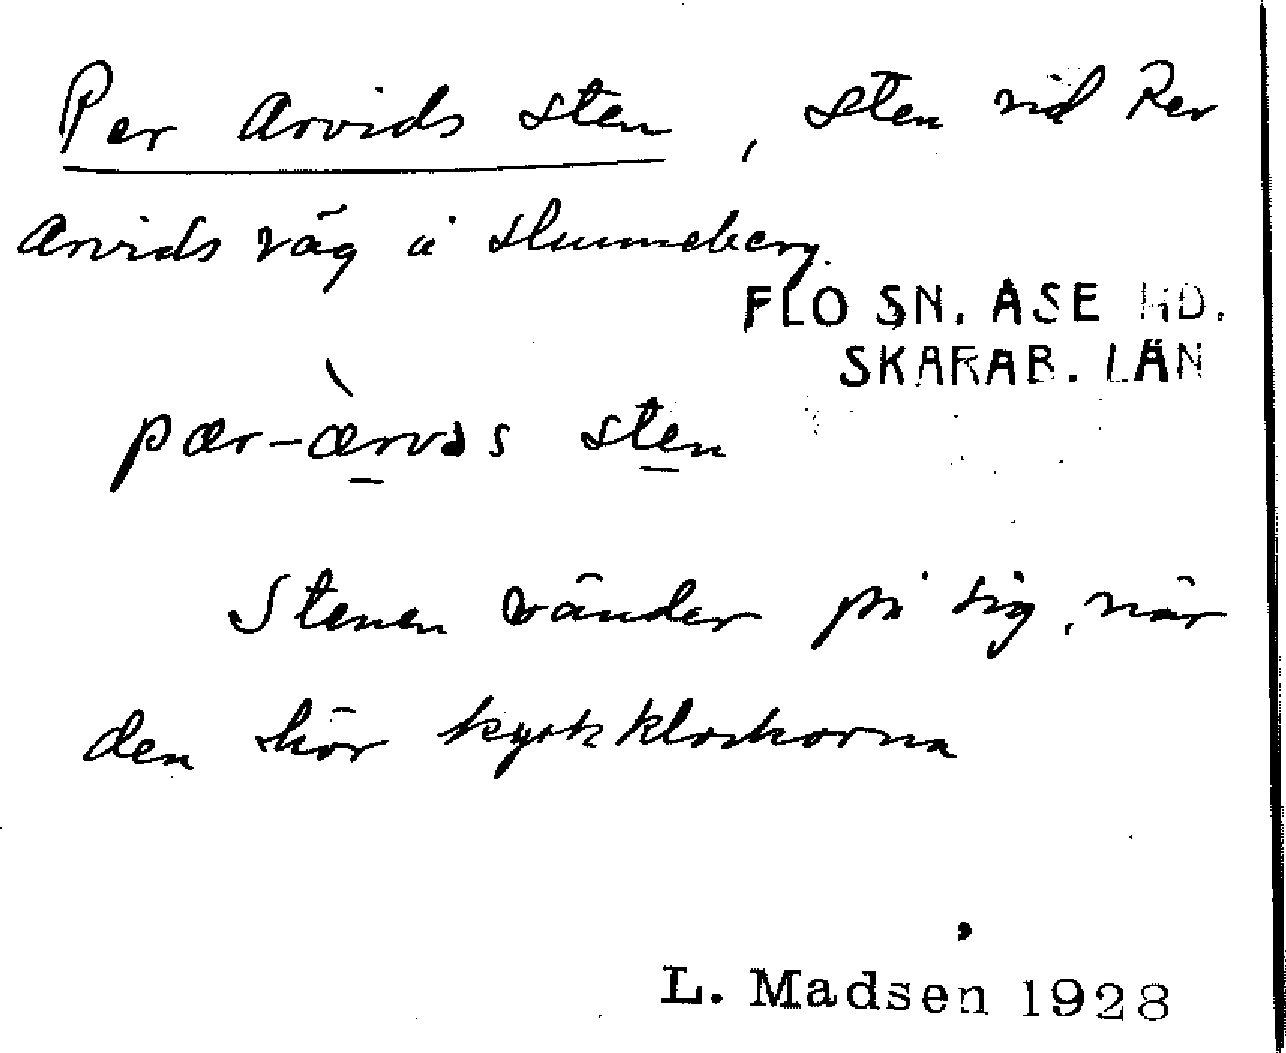 Per Arvids sten, sten vid Per
Arvids väg å Hunneberg.
FLO SN. ÅSE HD.
SKARAB. LÄN
pær-ærvəs sten
Stenen vänder på sig, när
den hör kyrkklockorna
L. Madsen 1928